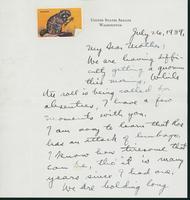 UNITED STATES SENATE
WASHINGTON
July 26, 1939,
My Dear Mother,
We are having diffi-
culty getting a quorum
this morning. While
the roll is being called for
absentees, I have a few
moments with you.
I am sorry to learn that
has an attack of lumbago.
I know how tiresome that
can be, tho' it is many
years since I had one.
We are holding long